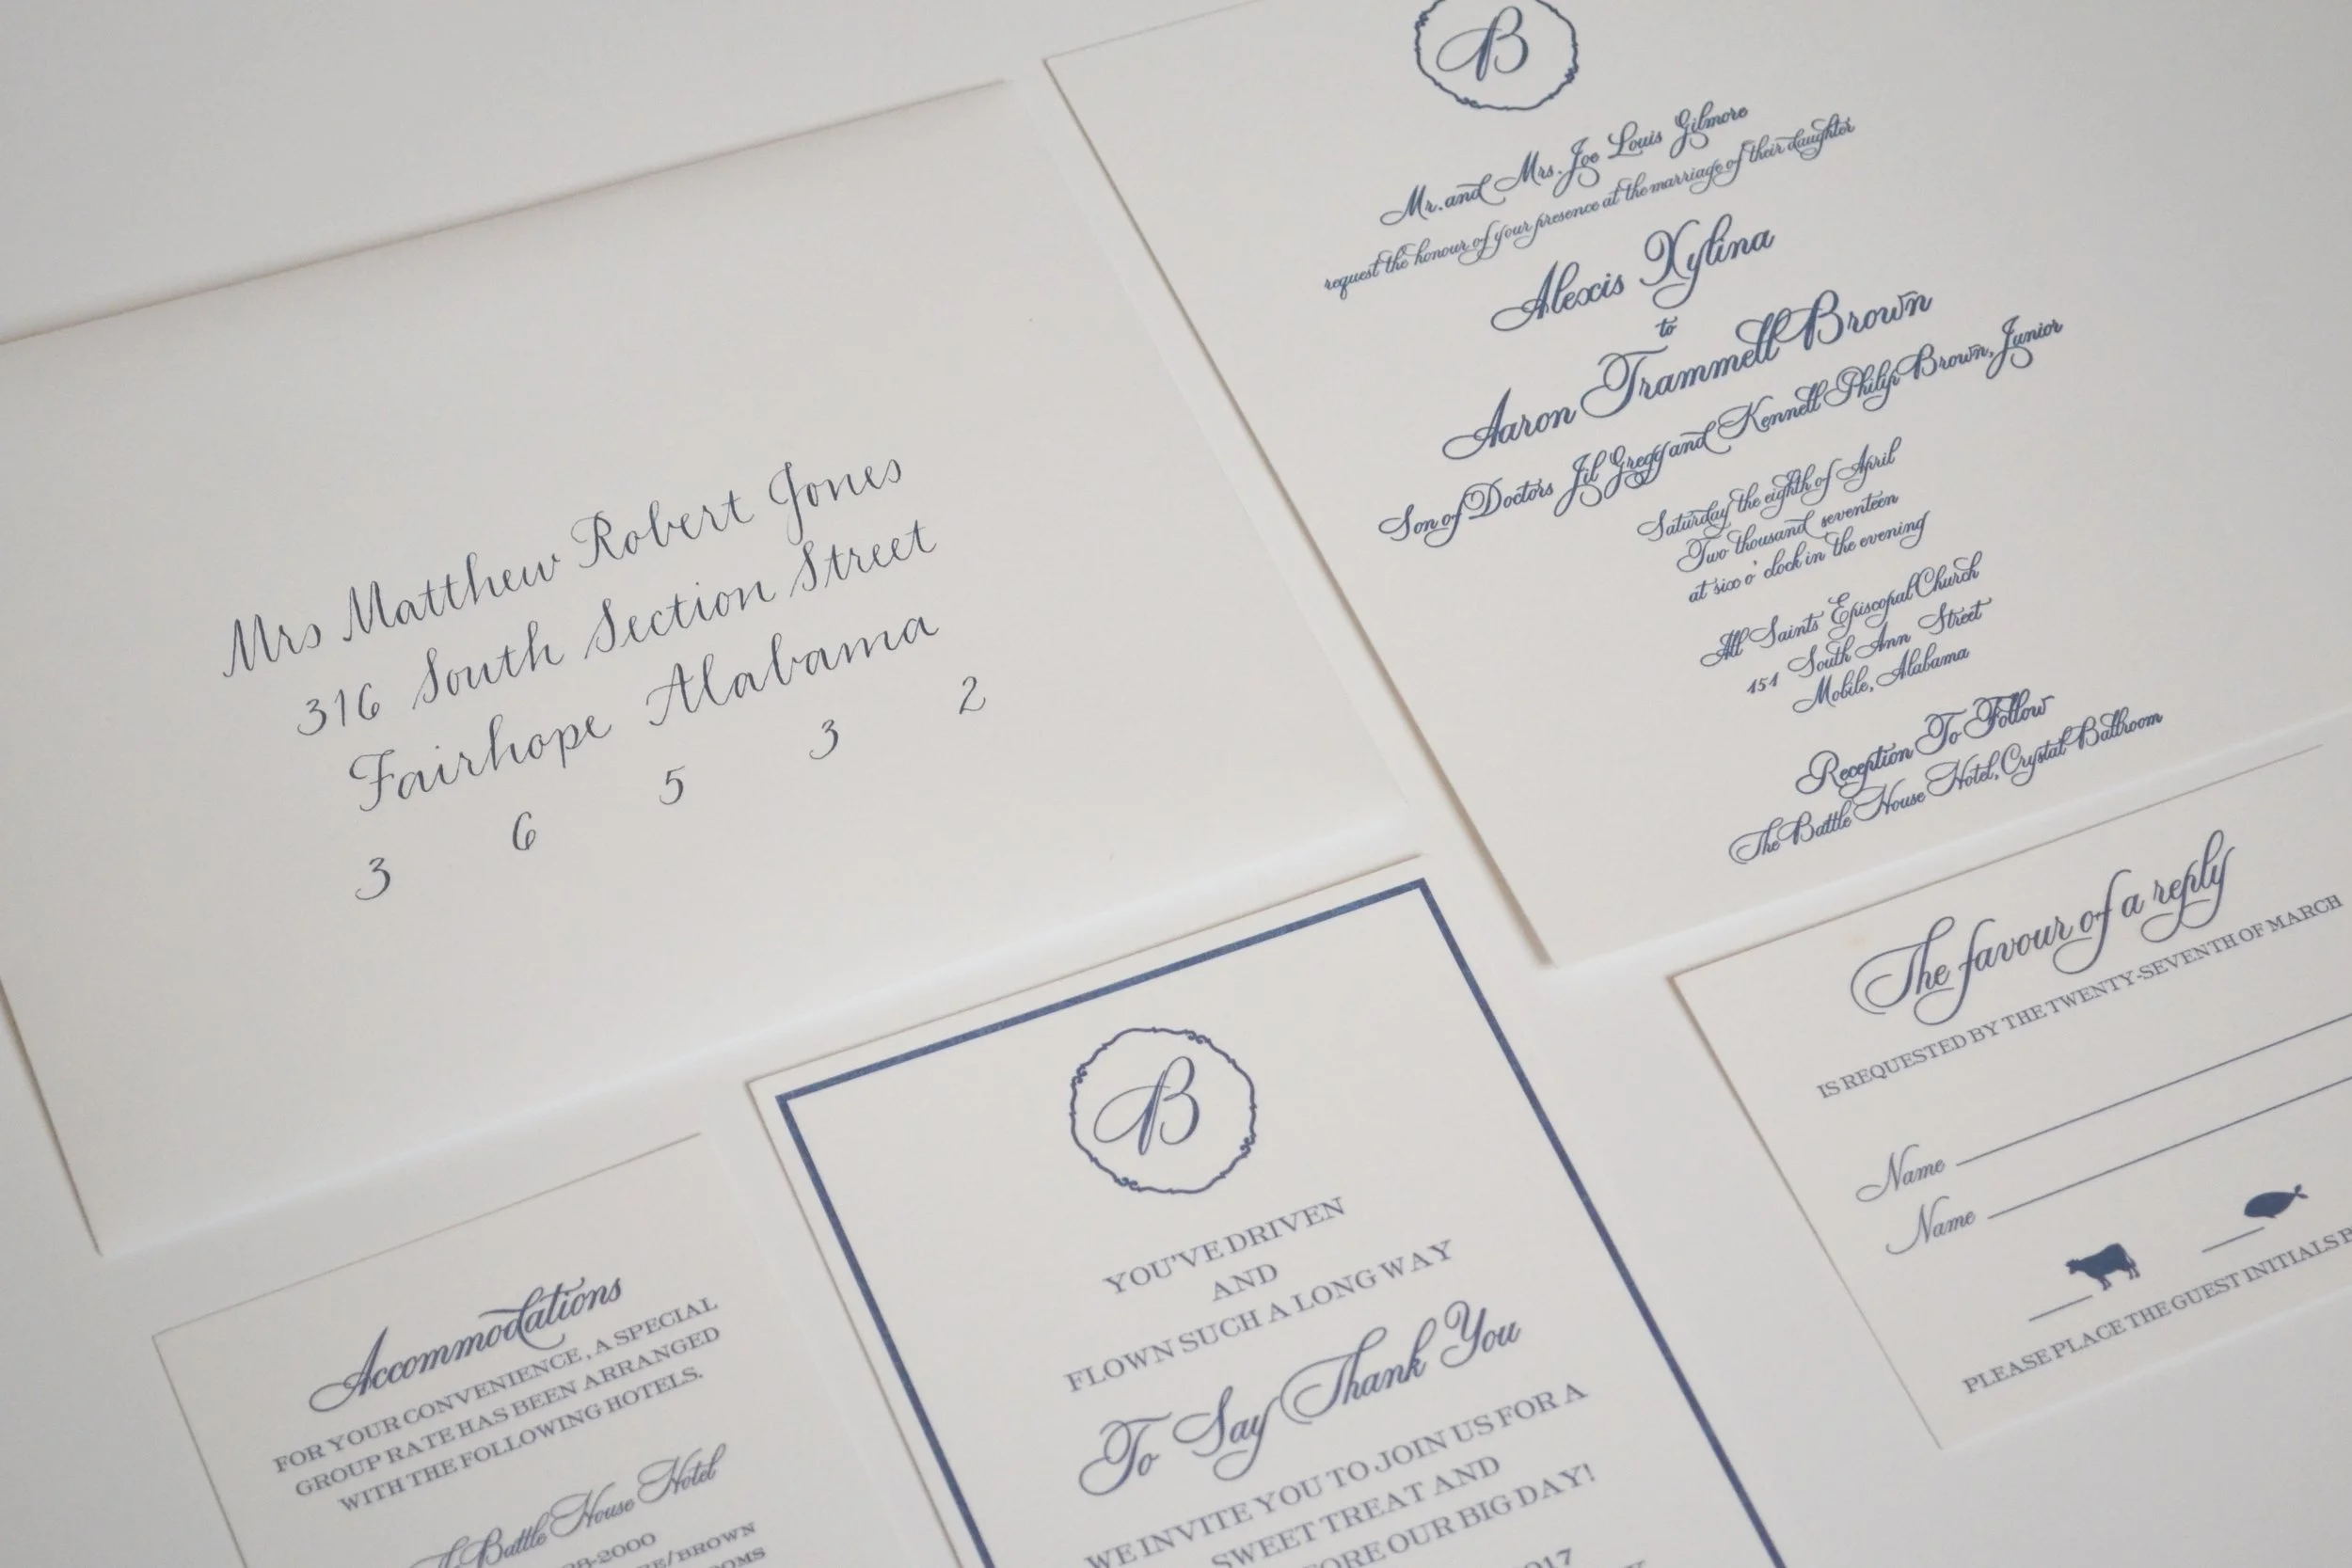 Mrs Matthew Robert Jones
316 South Section Street
Fairhope Alabama
3 6 5 3 2
B
Mr. and Mrs. Joe Louis Gilmore
request the honour of your presence at the marriage of their daughter
Alexis Xylina
to
Aaron Trammell Brown
Son of Doctors Jil Gregg and Kennell Philip Brown, Junior
Saturday the eighth of April
Two thousand seventeen
at six o' clock in the evening
All Saints Episcopal Church
151 South Ann Street
Mobile, Alabama
Reception To Follow
The Battle House Hotel, Crystal Ballroom
Accommodations
FOR YOUR CONVENIENCE, A SPECIAL
GROUP RATE HAS BEEN ARRANGED
WITH THE FOLLOWING HOTELS.
Battle House Hotel
8-2000
E/BROWN
OMS
B
YOU'VE DRIVEN
AND
FLOWN SUCH A LONG WAY
To Say Thank You
WE INVITE YOU TO JOIN US FOR A
SWEET TREAT AND
FORE OUR BIG DAY!
017
The favour of a reply
IS REQUESTED BY THE TWENTY-SEVENTH OF MARCH
Name
Name
PLEASE PLACE THE GUEST INITIALS B